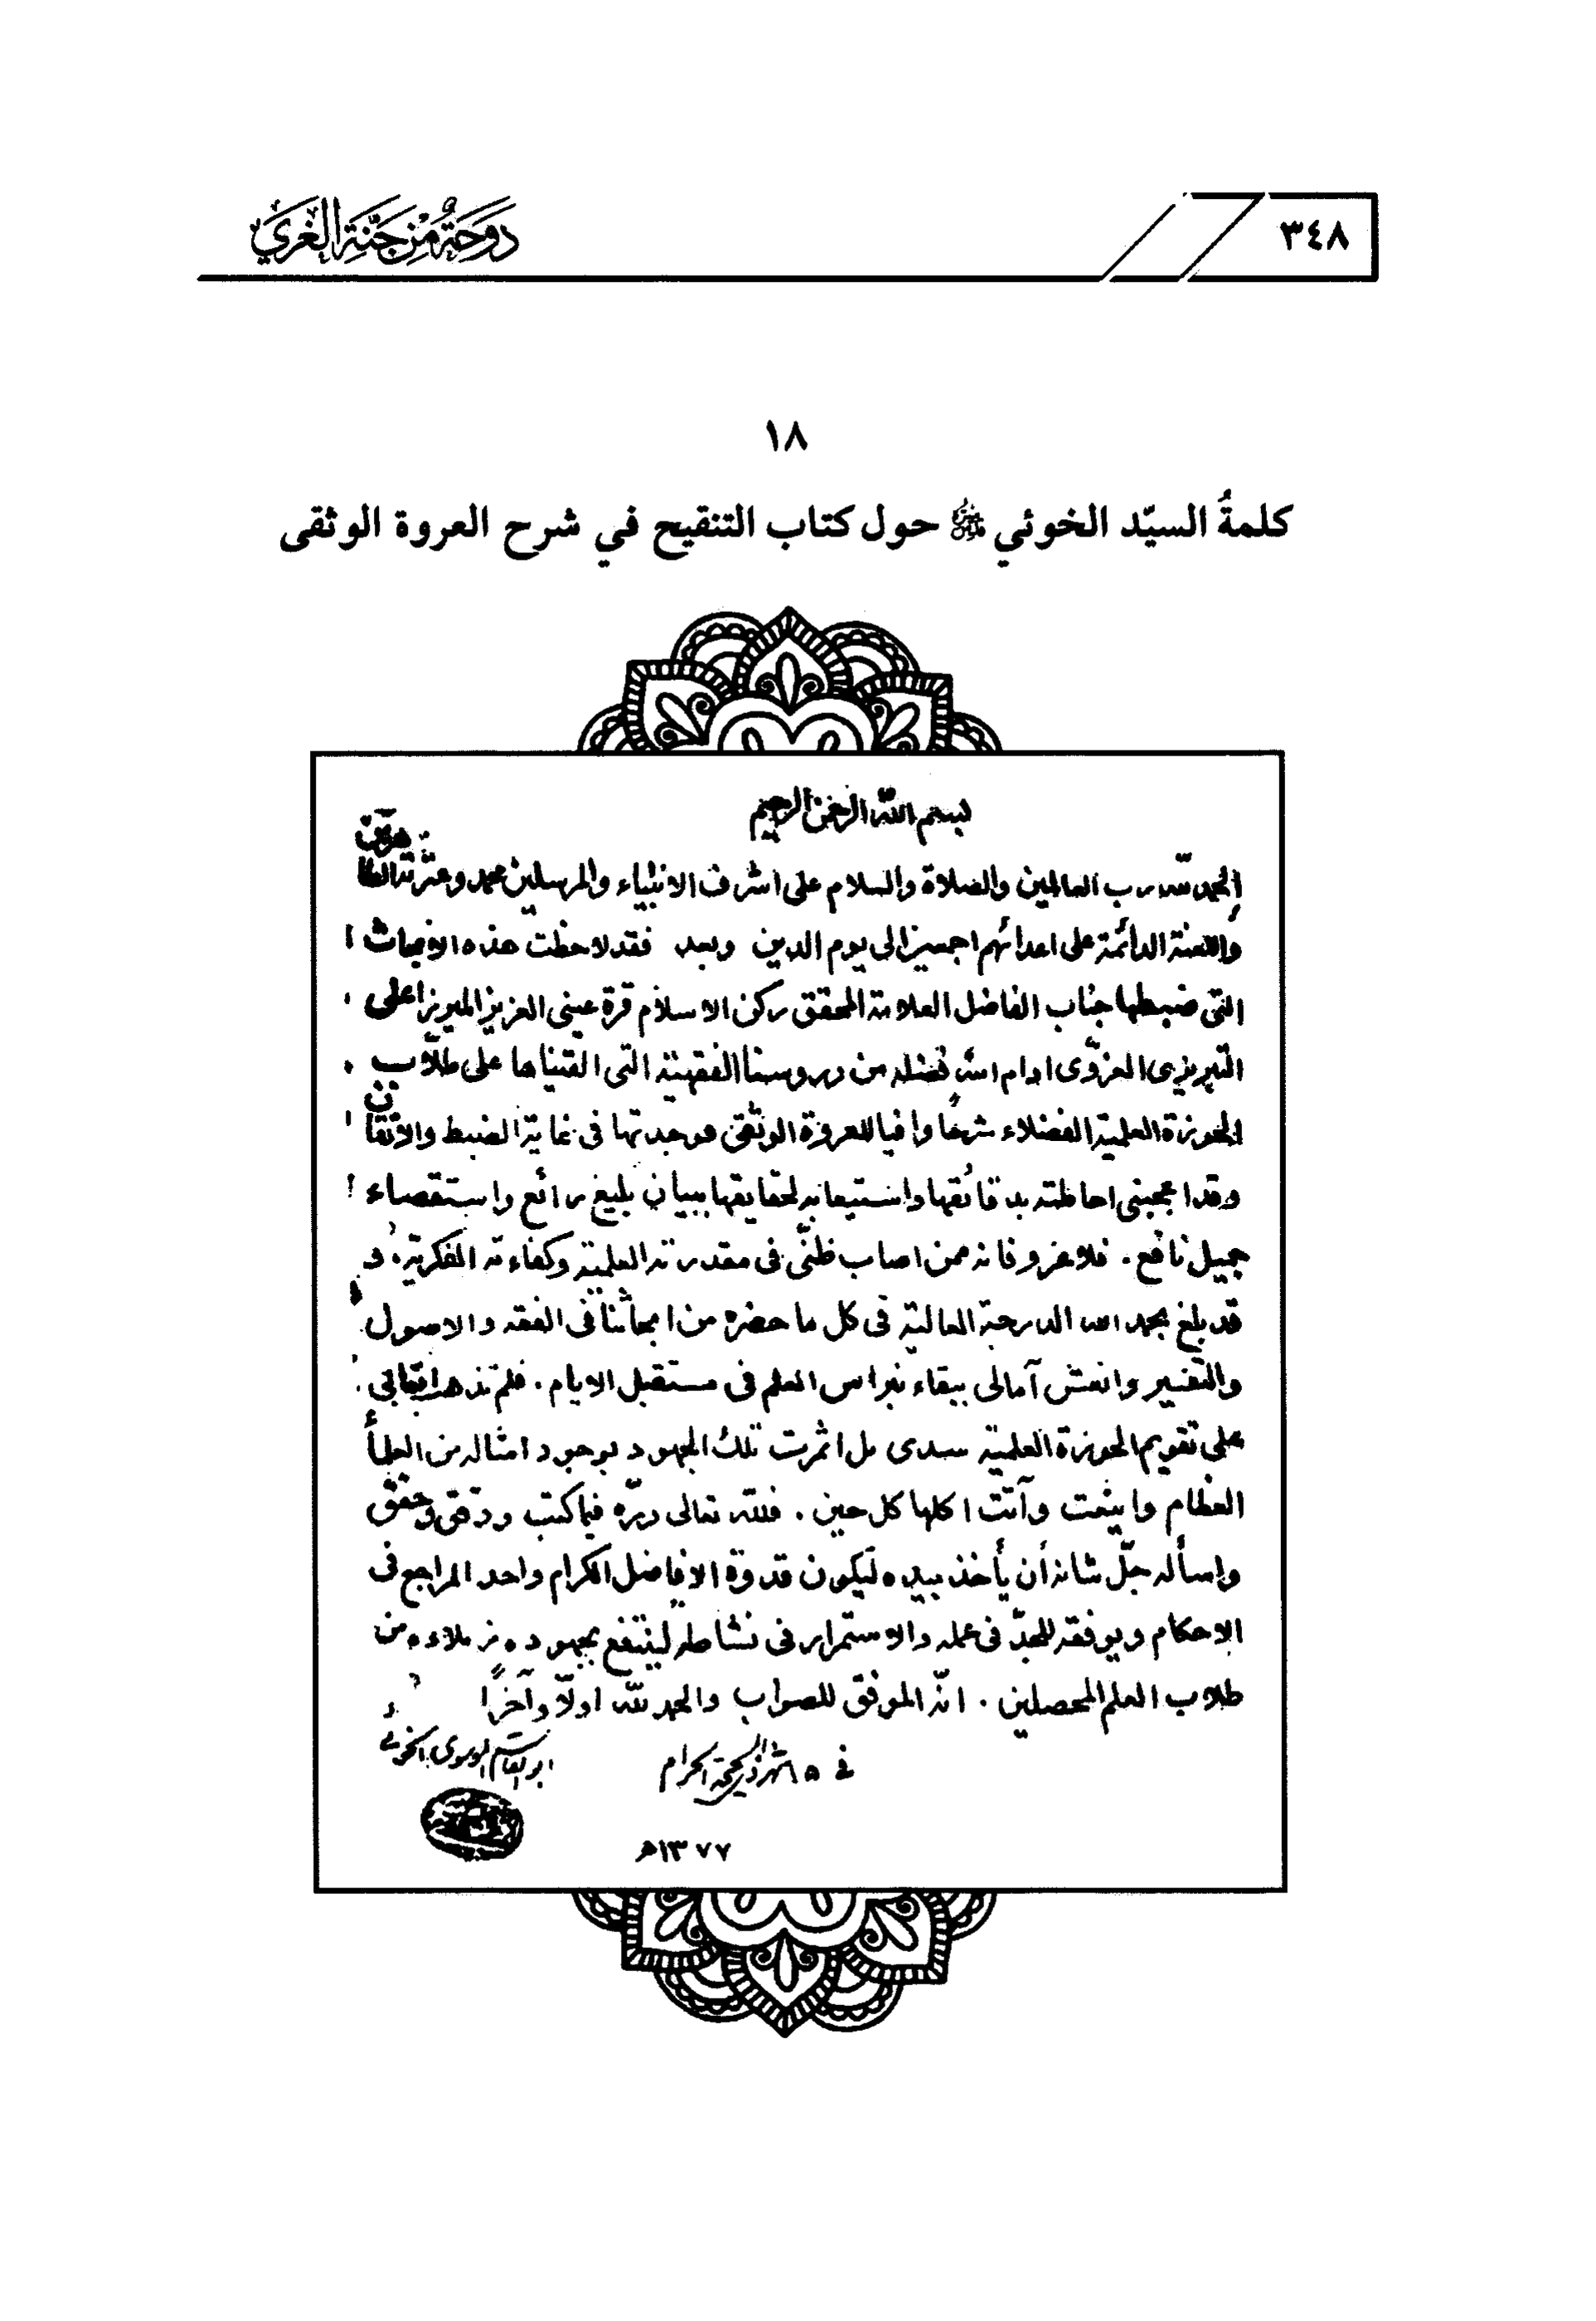 ٣٤٨
دوحة من جنة الغري
١٨
كلمةُ السيّد الخوئي حول كتاب التنقيح في شرح العروة الوثقى
بسم الله الرحمن الرحيم
الحمد لله رب العالمين والصلاة والسلام على اشرف الانبياء والمرسلين محمد وعترته الطاهرين
واللعنة الدائمة على اعدائهم اجمعين الى يوم الدين وبعد فقد لاحظت هذه الابحاث
التى ضبطها جناب الفاضل العلامة المحقق ركن الاسلام قرة عينى العزيز الميرزا على
التبريزى الغروّى ادام الله فضله من دروسنا الفقهيّة التى القيناها على طلّاب
الحوزة العلمية الفضلاء شرحًا وافيا للعروة الوثقى فوجدتها فى غاية الضبط والاتقان
وقد اعجبنى احاطته بدقائقها واستيعابه لحقايقها ببيان بليغ رائع واستقصاء
جميل نافع . فلا غرو فانه ممن اصاب ظنّى فى مقدرته العلمية وكفاءته الفكريّة . و
قد بلغ بحمد الله الدرجة العالية فى كل ما حضره من ابحاثنا فى الفقه والاصول
والتفسير وانعش آمالى ببقاء نبراس العلم فى مستقبل الايام . فلم تذهب اتعابي
على تقويم الحوزة العلميّة سدى بل اثمرت تلك الجهود بوجود امثاله من العلماء
العظام واينعت وآتت اكلها كل حين . فللّه تعالى درّه فيما كتب ودقق وحقق
واسأله جلّ شانه أن يأخذ بيده ليكون قدوة الافاضل الكرام واحد المراجع فى
الاحكام ويوفقه للجدّ فى عمله والاستمرار فى نشاطه لينتفع بجهوده زملاءه من
طلاب العلم المحصلين . انّه الموفق للصواب والحمد للّه اولًا وآخرًا
في ١٥ شهر ذي الحجة الحرام
ابوالقاسم الموسوى الخوئى
١٣٧٧هـ